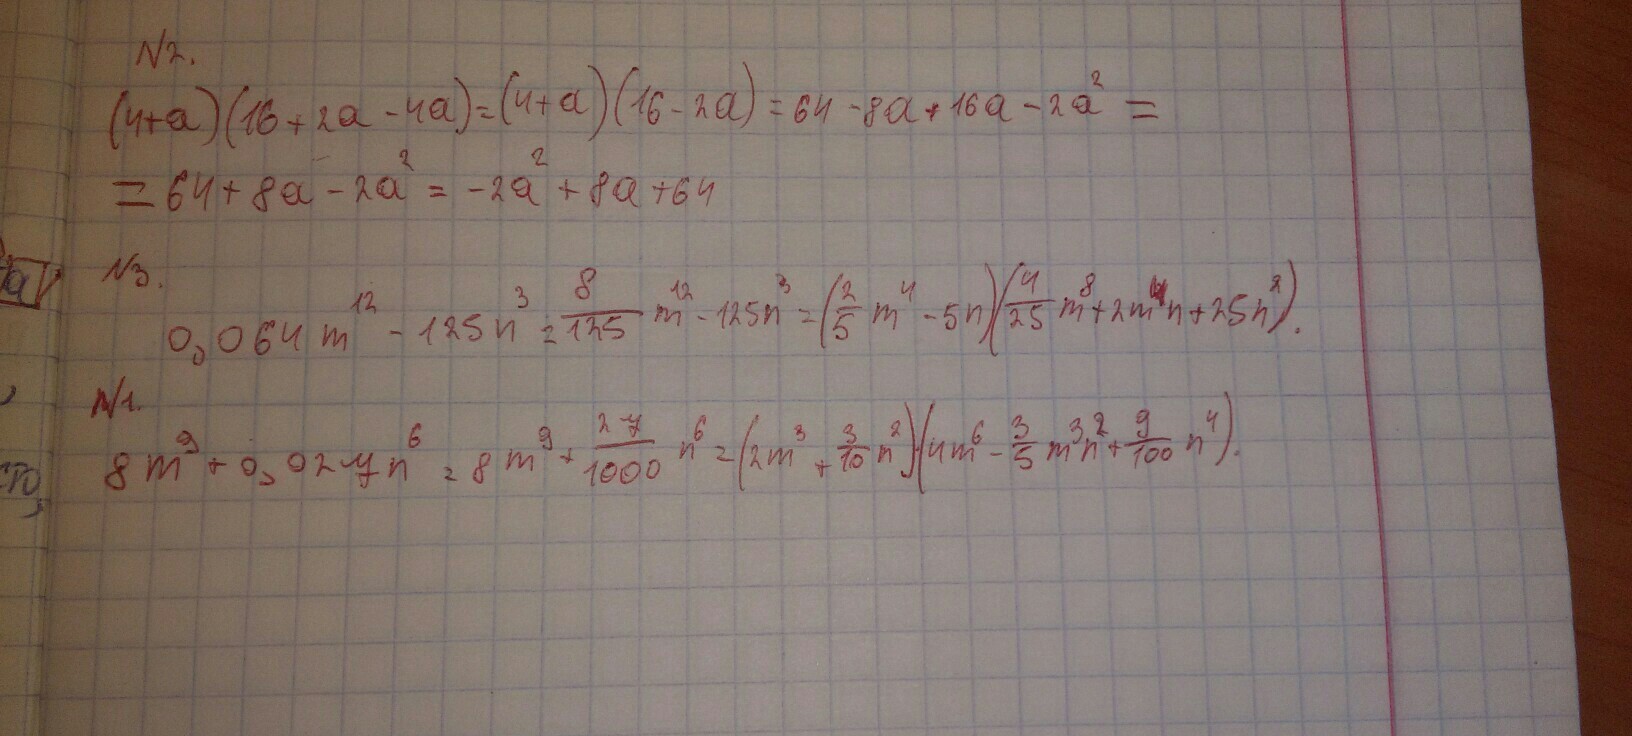 N2.
(4+a)(16+2a-4a)=(4+a)(16-2a)=64-8a+16a-2a²=
=64+8a-2a²=-2a²+8a+64
N3.
0,064m¹²-125n³=8/125 m¹²-125n³=(2/5 m⁴-5n)(4/25 m⁸+2m⁴n+25n²).
N1.
8m⁹+0,027n⁶=8m⁹+27/1000 n⁶=(2m³+3/10 n²)(4m⁶-3/5 m³n²+9/100 n⁴).